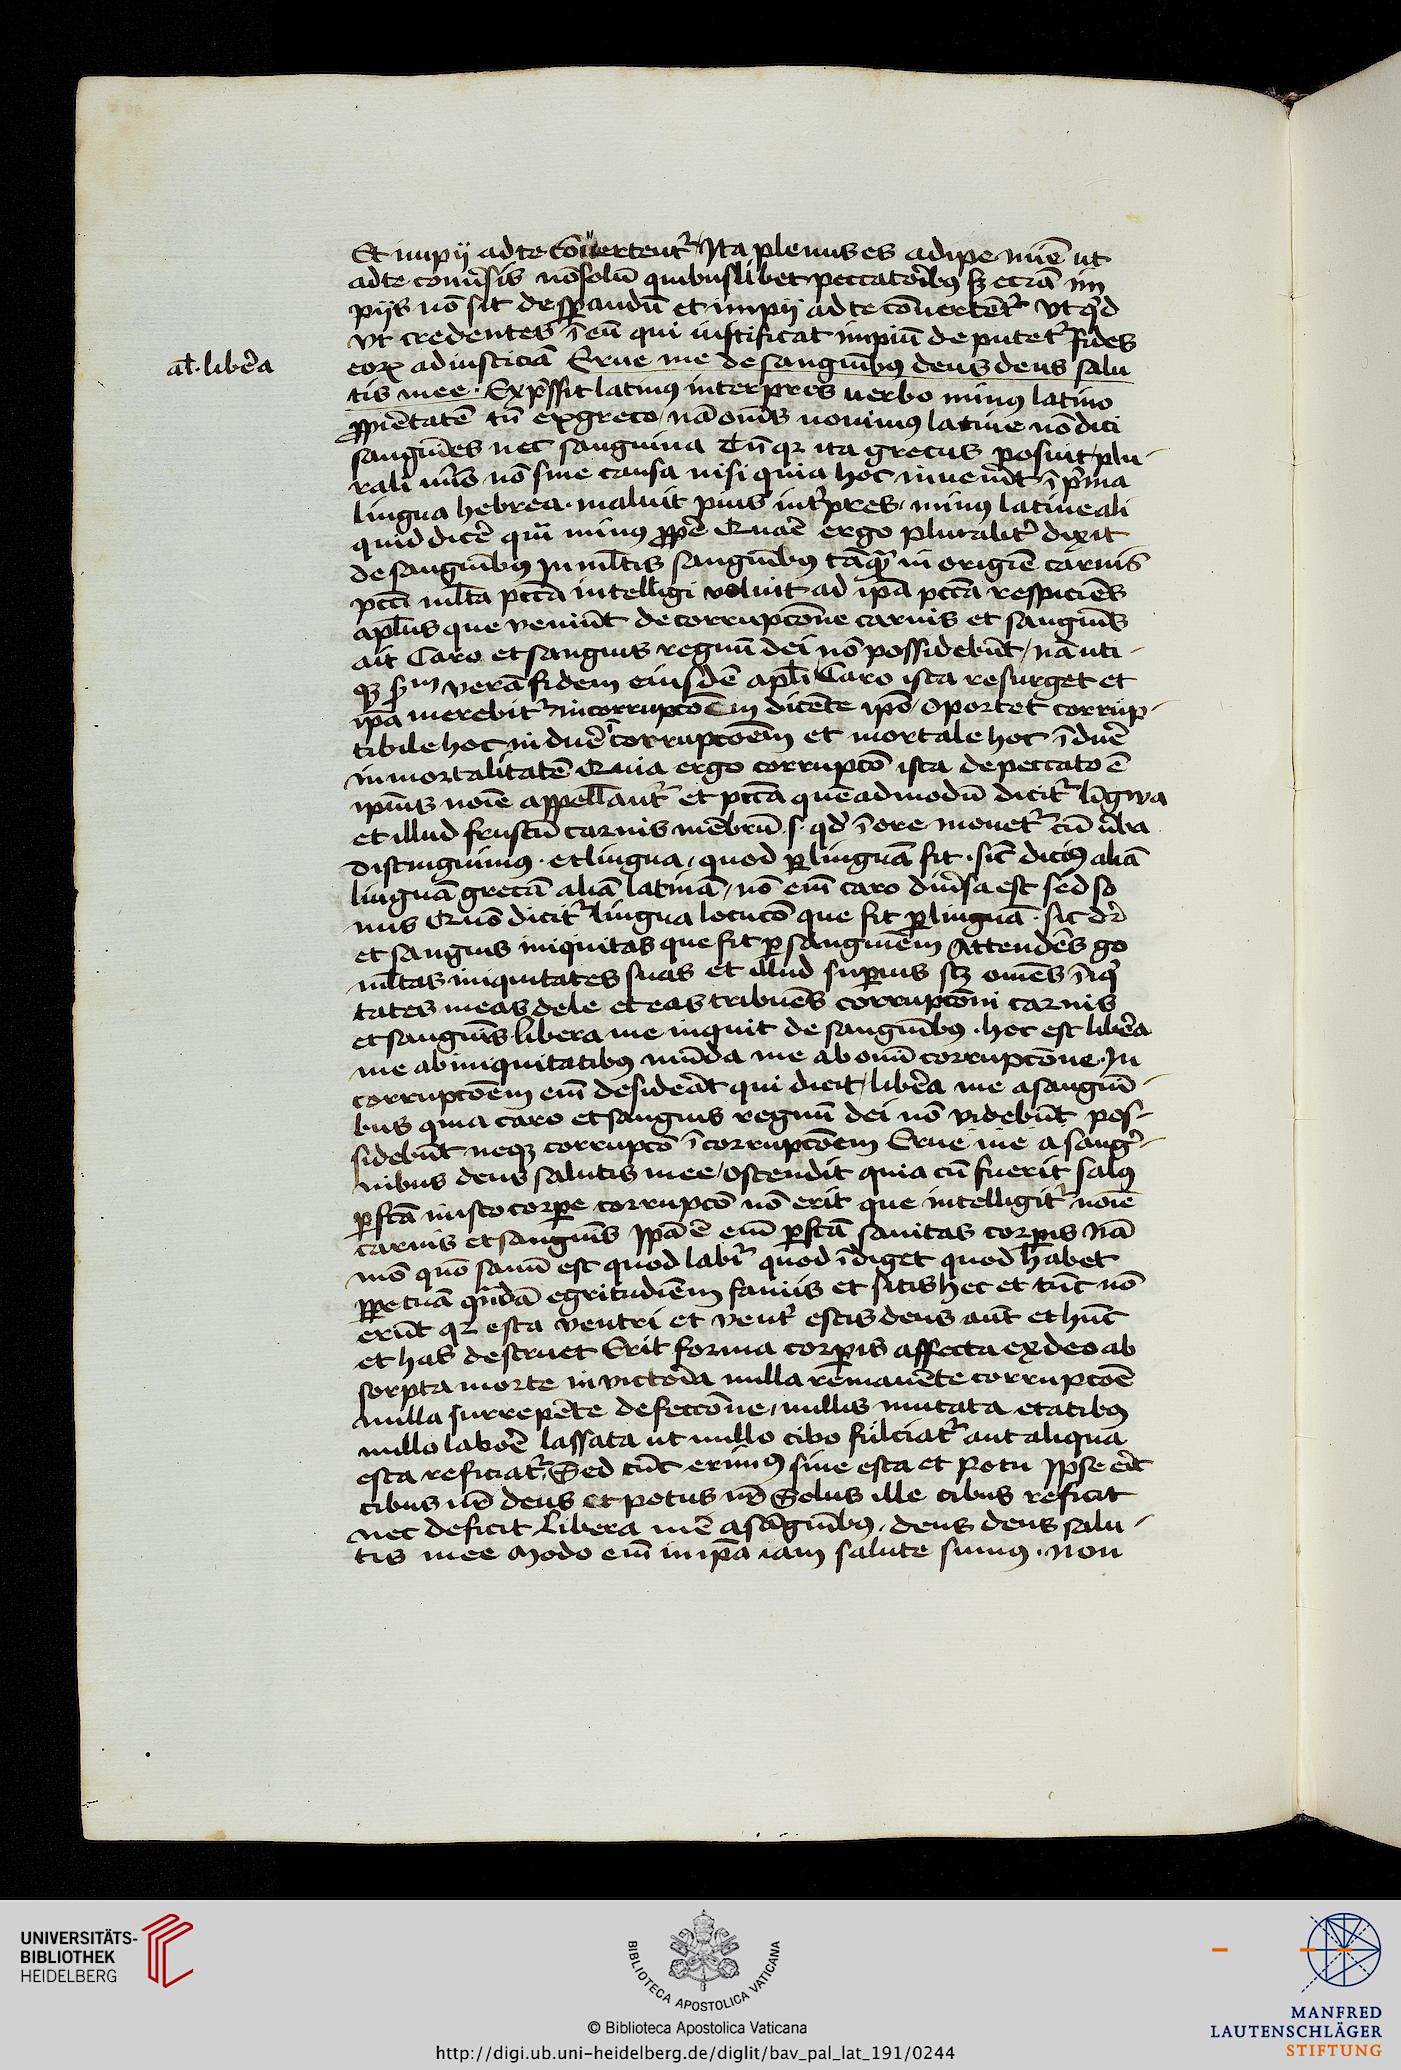 Et impij ad te co͞nuertent᷑ Ita plenus es adipe mi͞e ut
ad te conu͛sis no͞ solu͞ quibuslibet peccatori͞bꝫ sꝫ etia͞ im
pijs no͞ sit desꝑandu͞ et impij ad te co͞uerte͞t᷑ Vt qͥd
Vt credentes i͞ eu͞ qui iustificat impiu͞ deputet᷑ fides
al̄. libe͛a
eoꝝ ad iusticia͞ Erue me de sangui͞bꝫ deus deus salu
tis mee. Exp͛ssit latinꝰ interpres uerbo minꝰ latino
ꝓprieta͞te͞ tn̄ ex greco / na͞ om͞s nouimꝰ latine no͞ dici
sangui͞es nec sanguina Tn̄ qꝛ ita grecus posuit / plu-
rali nu͛o no͞ sine causa nisi quia hoc inuen͛it i͞ pͥma
lingua hebrea. maluit pius int͛pres. minꝰ latine ali
quid dice͛ qua͞ minꝰ ꝓpe͛ Qua͛e ergo pluralit͛ dixit
de sangui͞bꝫ In ml̄tis sangui͞bꝫ ta͞qᷓ in origi͞e carnis
pcc̄i ml̄ta pcc̄a intelligi voluit ad ip̄a pcc̄a respicie͞s
apl̄us que veniu͞t de corrupco͞ne carnis et sangui͞s
ait Caro et sanguis regnu͞ dei no͞ possidebu͞t / na͞ uti-
qꝫ sᷝm vera͞ fidem eiusde͞ apl̄i Caro ista resurget et
ip̄a merebit᷑ incorrupco͞em dice͞te ip̄o / Oportet corrup-
tibile hoc induе͛ i͞corrupco͞em et mortale hoc i͞due͛
inmortalitate͞ Quia ergo corrupco͞ ista de peccato e͞
ip̄ius no͞ie appella͞nt᷑ et pcc̄a que͞admodu͞ dicit᷑ li͞gwa
et illud frustu͞ carnis me͞bru͞ s. qd̕ i͞ ore mouet᷑ cu͞ u͛ba
distinguimꝰ. et lingua / quod ꝑ lingua͞ fit. sic̄ dicimꝰ alia͞
lingua͞ greca͞ alia͞ latina͞ / no͞ eni͞ caro diu͛sa est sed so
nus Quo͞ dicit᷑ lingua locuco͞ que fit ꝑ lingua͞. sic dr̄
et sanguis iniquitas que fit ꝑ sanguine͞m Attende͞s g̊
ml̄tas iniquitates suas et illud suꝑius scꝫ om͞es i͞iqͥ
tates meas dele et eas tribue͞s corrupco͞ni carnis
et sangui͞s libera me inquit de sangui͞bꝫ. hoc est libe͛a
me ab iniquitatibꝫ mu͞da me ab om͞i corrupco͞ne. In
corrupco͞em eni͞ deside͛at qui dicit / libe͛a me a sangui͞-
bus quia caro et sanguis regnu͞ dei no͞ videbu͞t pos-
sidebu͞t neqꝫ corrupco͞ i͞corrupco͞em Erue me a sangͥ-
nibus deus salutis mee / Ostendit quia cu͞ fuerit salꝰ
ꝑfc̄a in isto corpe corrupco͞ no͞ erit que intelligit᷑ no͞ie
carnis et sangui͞s Ip̄a e͞ eni͞ ꝑfc̄a sanitas corꝑis Na͞
mo͞ quo͞ sanu͞ est quod labit᷑ quod i͞diget quod habet
ꝑpetua͞ qua͞da͞ egritudi͞em famis et sitis hec et tu͞c no͞
eru͞t qꝛ esca ventri et vent͛ escis deus aut̄ et hu͞c
et has destruet Erit forma corꝑis affecta ex deo ab
sorpta morte in victoria nulla remane͞te corrupco͞e
nulla surrepe͞te defecco͞ne / nullis mutata etatibꝫ
nullo labo͛e lassata ut nullo cibo fulciat᷑ aut aliqua
esca reficiat᷑ / Sed tu͞c erimꝰ sine esca et potu Ipse e͛it
cibus nr̄ deus et potus nr̄ Solus ille cibus reficit
nec deficit Libera me͞ a sa͞gui͞bꝫ. deus deus salu-
tis mee Modo eni͞ in ip̄a iam salute sumꝰ. non
UNIVERSITÄTS-
BIBLIOTHEK
HEIDELBERG
BIBLIOTECA APOSTOLICA VATICANA
© Biblioteca Apostolica Vaticana
http://digi.ub.uni-heidelberg.de/diglit/bav_pal_lat_191/0244
MANFRED
LAUTENSCHLÄGER
STIFTUNG